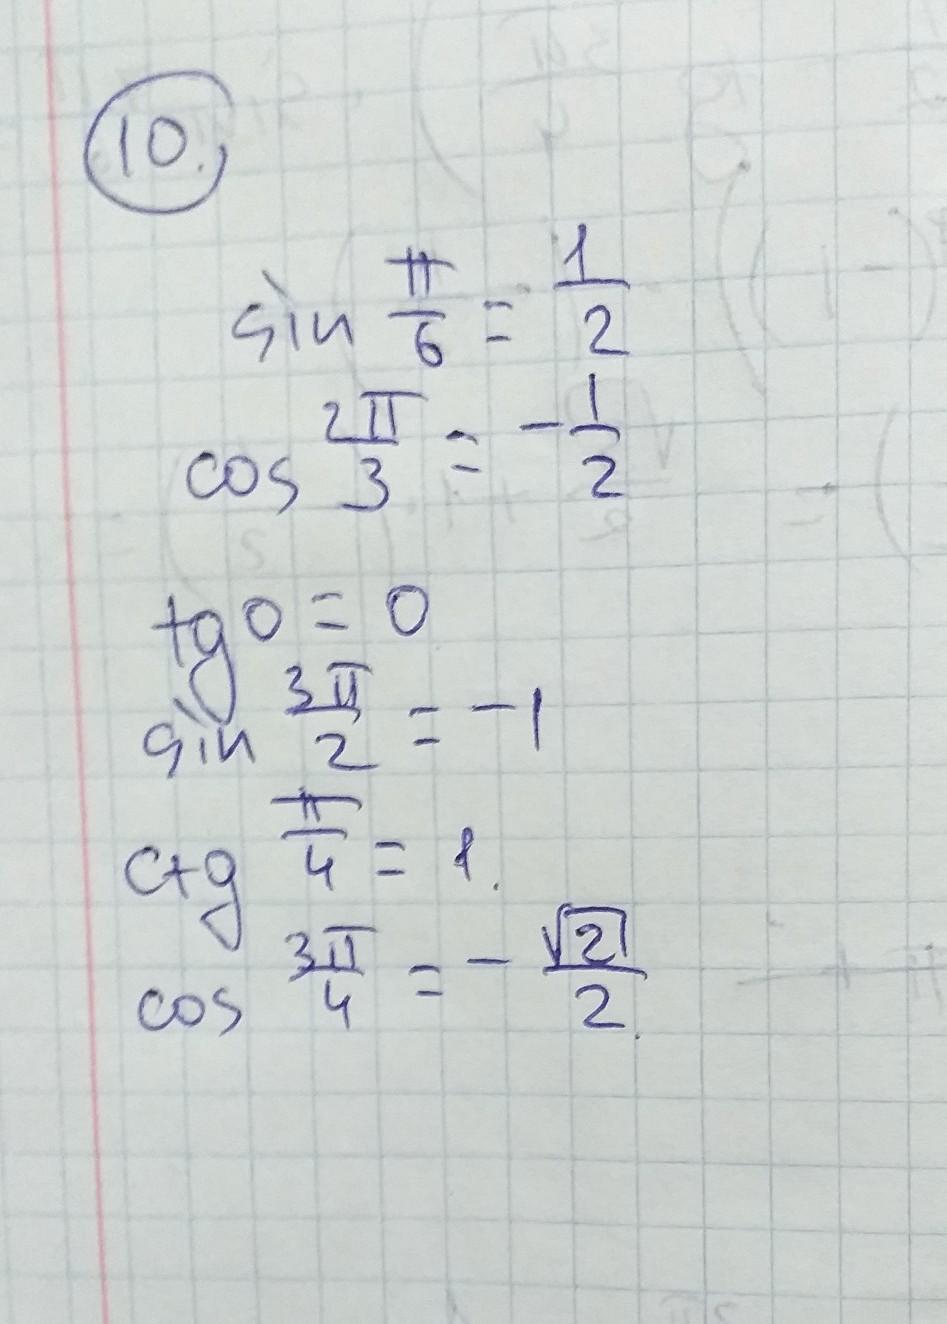 10.
sin π/6 = 1/2
cos 2π/3 = -1/2
tg 0 = 0
sin 3π/2 = -1
ctg π/4 = 1.
cos 3π/4 = -√2/2.